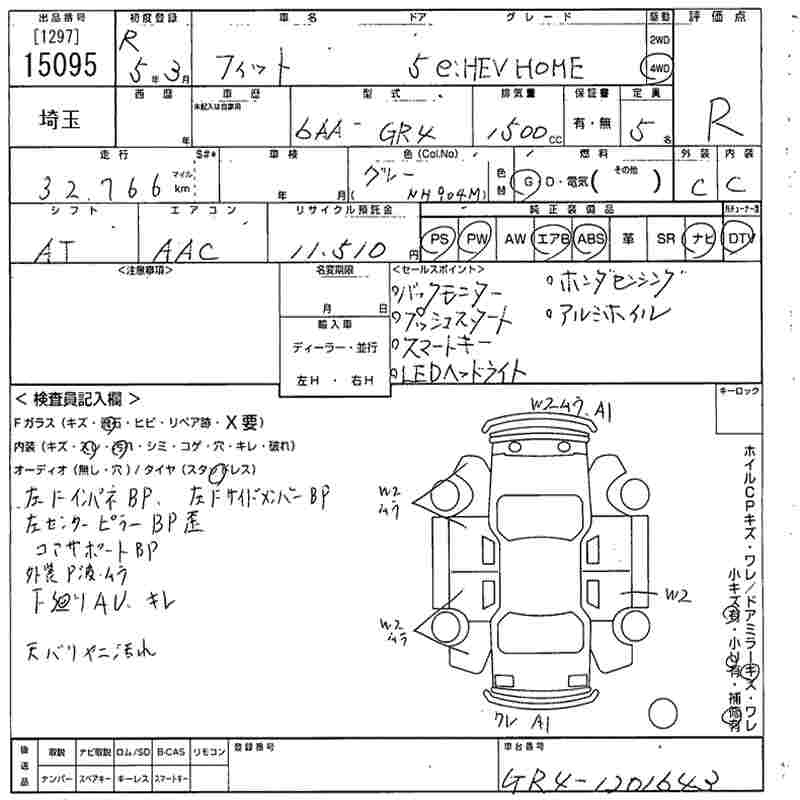 出品番号 初度登録 車名 ドア グレード 駆動 評価点
[1297] R 2WD
15095 5年3月 フィット 5 e:HEV HOME 4WD R
西暦 車歴 型式 排気量 保証書 定員
未記入は自家用
埼玉 年 6AA-GR4 1500cc 有・無 5名
走行 S#* 車検 色(Col.No) 燃料 外装 内装
32.766 マイル km 年 月 グレー (NH904M) 色替 G・D・電気( その他 ) C C
シフト エアコン リサイクル預託金 純正装備品
AT AAC 11.510円 PS PW AW エアB ABS 革 SR ナビ DTV
<注意事項> 名変期限 <セールスポイント>
月 日 ・バックモニター ・ホンダセンシング
輸入車 ・プッシュスタート ・アルミホイル
ディーラー・並行 ・スマートキー
左H・右H ・LEDヘッドライト
<検査員記入欄> キーロック
Fガラス(キズ・飛石・ヒビ・リペア跡・X要)
内装(キズ・スレ・汚れ・シミ・コゲ・穴・キレ・破れ)
オーディオ(無し・穴)/タイヤ(スタッドレス)
左Fインパネ BP、左Fサイドメンバー BP
左センターピラー BP歪
コアサポート BP
外装 P波・ムラ
下廻りAU、キレ
天バリヤニ汚れ
W2ムラ A1
W2
ムラ
W2
W2
ムラ
ワレ A1
ホイルCPキズ・ワレ/ドアミラーキズ・ワレ
小キズ有・小U有・補修有
後送品 取説 ナビ取説 ロム/SD B-CAS リモコン 登録番号 車台番号
ナンバー スペアキー キーレス スマートキー GR4-1201643